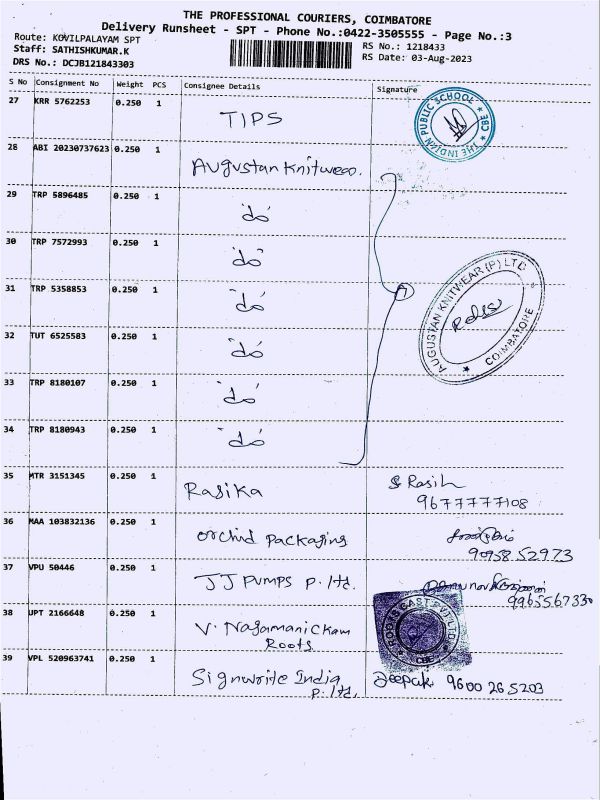 THE PROFESSIONAL COURIERS, COIMBATORE
Delivery Runsheet - SPT - Phone No.:0422-3505555 - Page No.:3
Route: KOVILPALAYAM SPT
RS No.: 1218433
Staff: SATHISHKUMAR.K
RS Date: 03-Aug-2023
DRS No.: DCJB121843303
S No Consignment No Weight PCS Consignee Details Signature
27 KRR 5762253 0.250 1 TIPS
THE INDIAN PUBLIC SCHOOL ★ CBE ★
28 ABI 20230737623 0.250 1 Augustan Knitwear.
29 TRP 5896485 0.250 1 "do"
30 TRP 7572993 0.250 1 "do"
31 TRP 5358853 0.250 1 "do"
AUGUSTAN KNITWEAR (P) LTD ★ COIMBATORE ★
32 TUT 6525583 0.250 1 "do"
33 TRP 8180107 0.250 1 "do"
34 TRP 8180943 0.250 1 "do"
35 MTR 3151345 0.250 1 Rasika
9677777108
36 MAA 103832136 0.250 1 Orchid Packaging
9095852973
37 VPU 50446 0.250 1 JJ PUMPS P. ltd.
9965567330
38 UPT 2166648 0.250 1 V. Nagamanickam
Roots
ROOTS CAST PVT LTD CBE
39 VPL 520963741 0.250 1 Signwrite India Deepak 9600 26 5203
P. ltd.